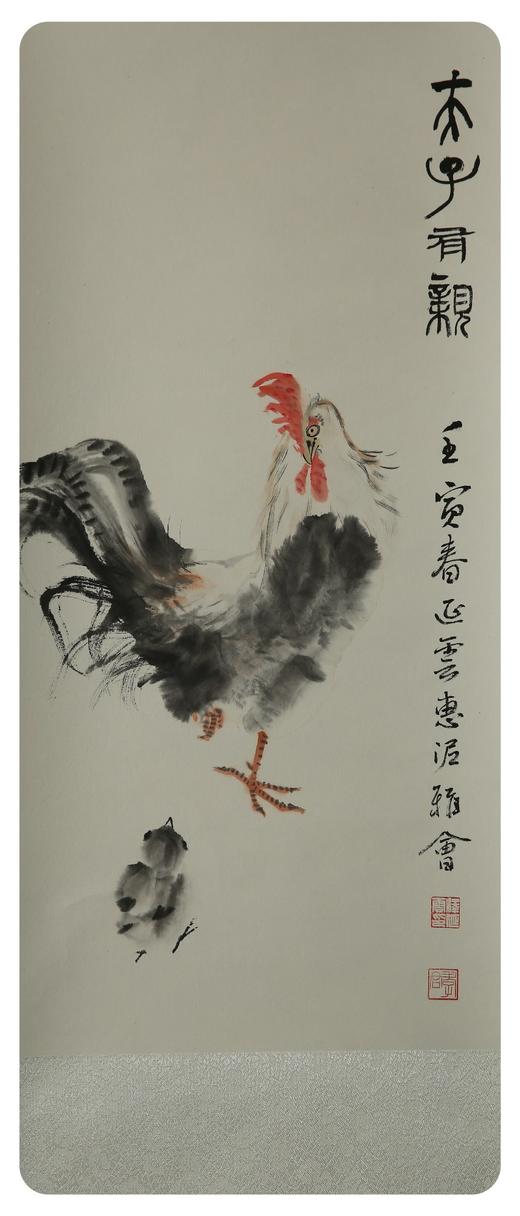 夫子有親
壬寅春延雲惠泥雅會